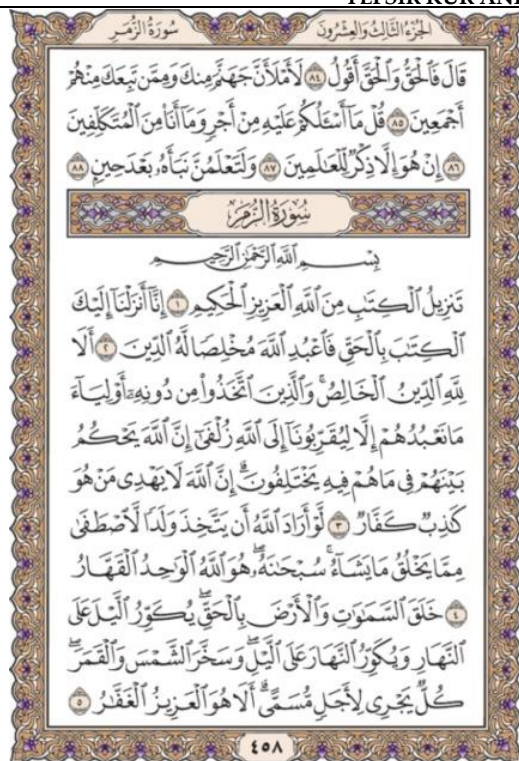 الجُزْءُ الثَّالِثُ وَالعِشْرُونَ
سُورَةُ الزُّمَرِ
قَالَ فَٱلْحَقُّ وَٱلْحَقَّ أَقُولُ ٨٤ لَأَمْلَأَنَّ جَهَنَّمَ مِنكَ وَمِمَّن تَبِعَكَ مِنْهُمْ
أَجْمَعِينَ ٨٥ قُلْ مَآ أَسْـَٔلُكُمْ عَلَيْهِ مِنْ أَجْرٍ وَمَآ أَنَا۠ مِنَ ٱلْمُتَكَلِّفِينَ
٨٦ إِنْ هُوَ إِلَّا ذِكْرٌ لِّلْعَٰلَمِينَ ٨٧ وَلَتَعْلَمُنَّ نَبَأَهُۥ بَعْدَ حِينٍۭ ٨٨
سُورَةُ الزُّمَرِ
بِسْمِ ٱللَّهِ ٱلرَّحْمَٰنِ ٱلرَّحِيمِ
تَنزِيلُ ٱلْكِتَٰبِ مِنَ ٱللَّهِ ٱلْعَزِيزِ ٱلْحَكِيمِ ١ إِنَّآ أَنزَلْنَآ إِلَيْكَ
ٱلْكِتَٰبَ بِٱلْحَقِّ فَٱعْبُدِ ٱللَّهَ مُخْلِصًا لَّهُ ٱلدِّينَ ٢ أَلَا
لِلَّهِ ٱلدِّينُ ٱلْخَالِصُ ۚ وَٱلَّذِينَ ٱتَّخَذُوا۟ مِن دُونِهِۦٓ أَوْلِيَآءَ
مَا نَعْبُدُهُمْ إِلَّا لِيُقَرِّبُونَآ إِلَى ٱللَّهِ زُلْفَىٰٓ إِنَّ ٱللَّهَ يَحْكُمُ
بَيْنَهُمْ فِى مَا هُمْ فِيهِ يَخْتَلِفُونَ ۗ إِنَّ ٱللَّهَ لَا يَهْدِى مَنْ هُوَ
كَٰذِبٌ كَفَّارٌ ٣ لَّوْ أَرَادَ ٱللَّهُ أَن يَتَّخِذَ وَلَدًا لَّٱصْطَفَىٰ
مِمَّا يَخْلُقُ مَا يَشَآءُ ۚ سُبْحَٰنَهُۥ ۖ هُوَ ٱللَّهُ ٱلْوَٰحِدُ ٱلْقَهَّارُ
٤ خَلَقَ ٱلسَّمَٰوَٰتِ وَٱلْأَرْضَ بِٱلْحَقِّ ۖ يُكَوِّرُ ٱلَّيْلَ عَلَى
ٱلنَّهَارِ وَيُكَوِّرُ ٱلنَّهَارَ عَلَى ٱلَّيْلِ ۖ وَسَخَّرَ ٱلشَّمْسَ وَٱلْقَمَرَ ۖ
كُلٌّ يَجْرِى لِأَجَلٍ مُّسَمًّى ۗ أَلَا هُوَ ٱلْعَزِيزُ ٱلْغَفَّٰرُ ٥
٤٥٨